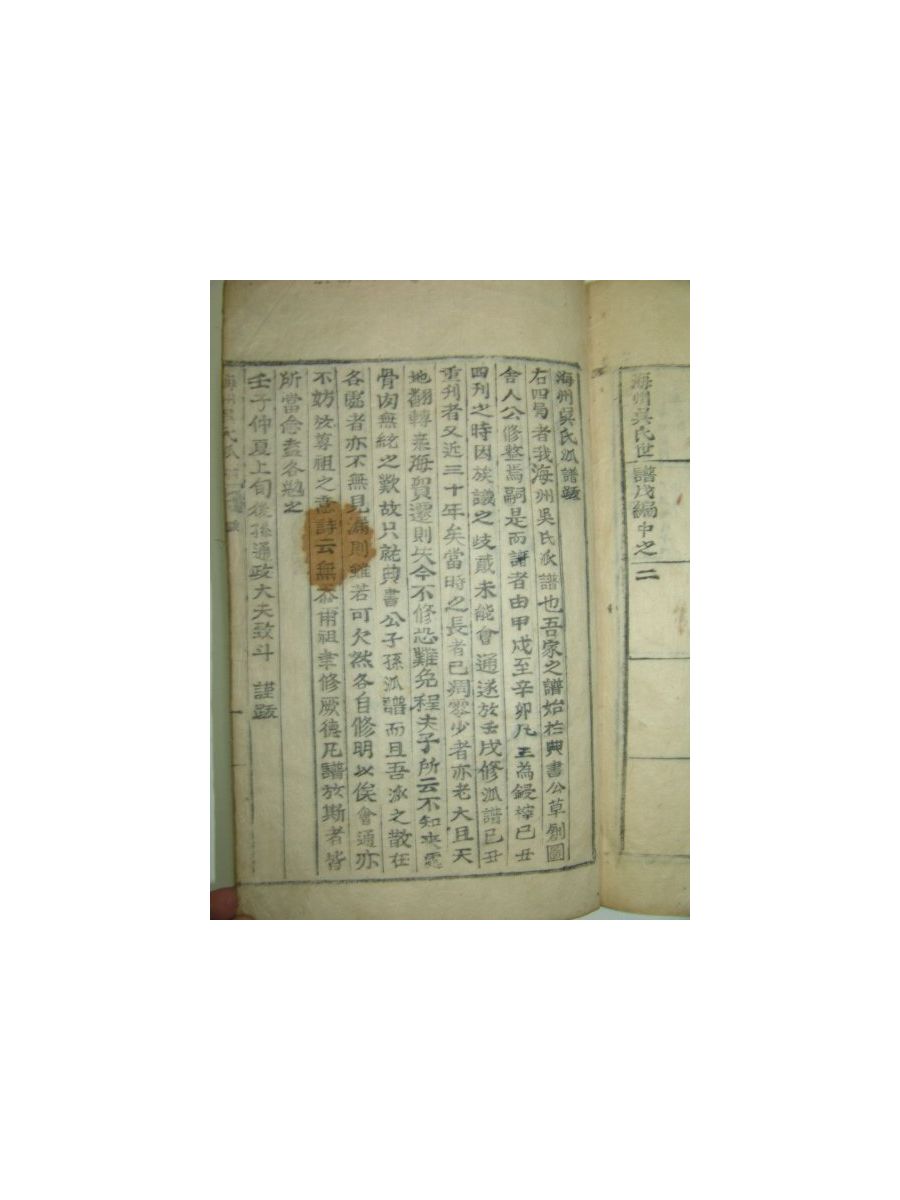 海州吳氏世譜戊編中之二
海州吳氏派譜跋
右四局者我海州吳氏派譜也吾家之譜始於典書公草創圖
舍人公修整焉嗣是而譜者由甲戌至辛卯凡三為鋟梓已丑
四刊之時因族議之歧貳未能會通遂於壬戌修派譜已丑
重刊者又近三十年矣當時之長者已凋零少者亦老大且天
地飜轉桒海貿遷則失今不修恐難免程夫子所云不知來處
骨肉無統之歎故只就典書公子孫派譜而且吾派之散在
各處者亦不無見漏則雖若可欠然各自修明以俟會通亦
不妨於尊祖之意詩云無忝爾祖聿修厥德凡譜於斯者皆
所當念盍各勉之
壬子仲夏上旬後孫通政大夫致斗 謹跋
海州吳氏派譜 跋 一